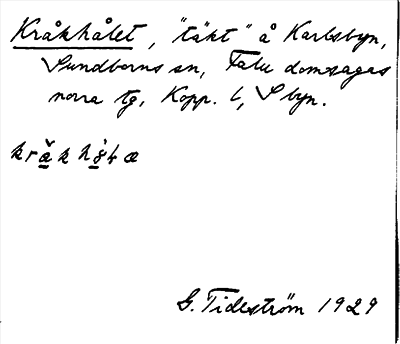 Kråkhålet, "täkt" å Karlsbyn,
Sundborns sn, Falu domsagas
norra tg, Kopp. l, S byn.
G. Tideström 1929